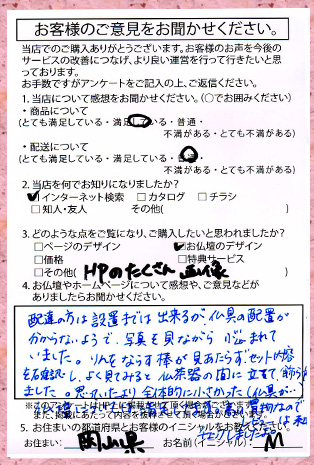 お客様のご意見をお聞かせください。
当店でのご購入ありがとうございます。お客様のお声を今後の
サービスの改善につなげ、より良い運営を行って行きたいと思
っております。
お手数ですがアンケートをご記入の上、ご返信ください。
1. 当店について感想をお聞かせください。(〇でお囲みください)
・商品について
(とても満足している・満足している・普通・
不満がある・とても不満がある)
・配送について
(とても満足している・満足している・普通・
不満がある・とても不満がある)
2. 当店を何でお知りになりましたか?
☑インターネット検索 □カタログ □チラシ
□知人・友人 その他( )
3. どのような点をご覧になり、ご購入したいと思われましたか?
□ページのデザイン ☑お仏壇のデザイン
□価格 □特典サービス
□その他( HPのたくさん画像 )
4. お仏壇やホームページについて感想や、ご意見などが
ありましたらお聞かせください。
配達の方は設置までは出来るが、仏具の配置が
わからないようで、写真を見ながら悩まれて
いました。りんをならす棒が見あたらず、セット内容
を確認し、よく見てみると仏茶器の間に立てて飾り
ました。思ったより全体的に小さかった(仏具が…
※このアンケートはHP上に掲載させて頂く場合がございます。
また、掲載にあたって内容を抜粋させて頂く場合がございます。
5. お住いの都道府県とお客様のイニシャルをお教えください。
お住まい: 岡山県 お名前(イニシャル): M